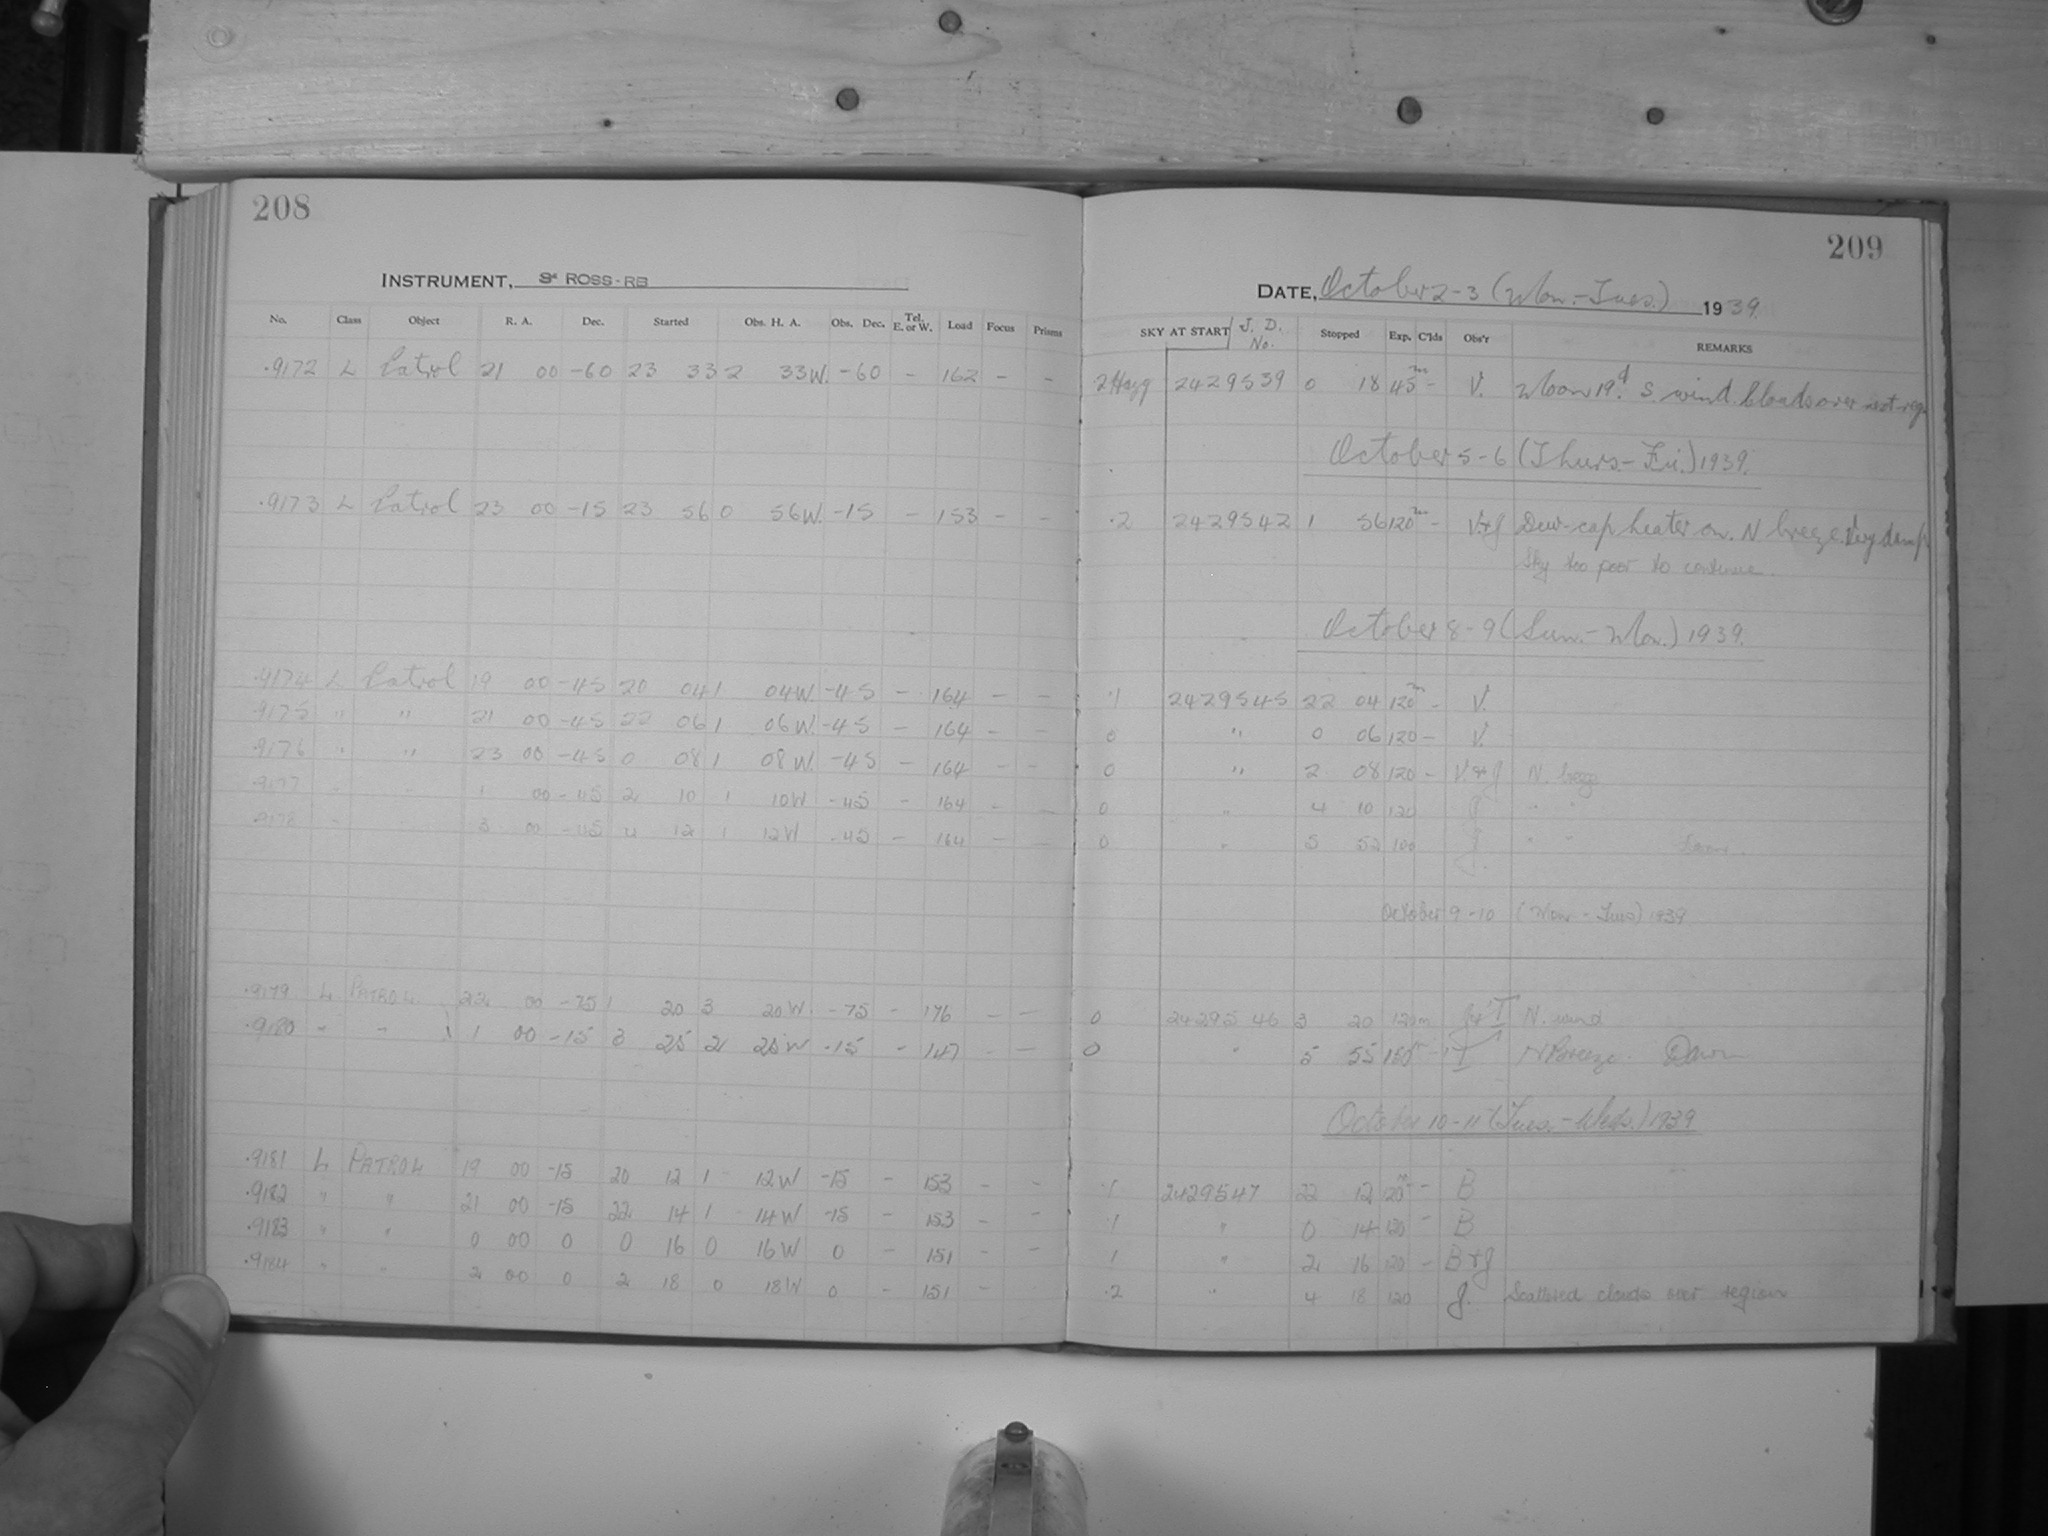 208
INSTRUMENT, 3" ROSS-RB
No. Class Object R. A. Dec. Started Obs. H. A. Obs. Dec. Tel. E. or W. Load Focus Prisms
.9172 L Patrol 21 00 -60 23 33 2 33W. -60 - 162 - -
.9173 L Patrol 23 00 -15 23 56 0 56W. -15 - 153 - -
.9174 L Patrol 19 00 -45 20 04 1 04W. -45 - 164 - -
.9175 " " 21 00 -45 22 06 1 06W. -45 - 164 - -
.9176 " " 23 00 -45 0 08 1 08W. -45 - 164 - -
.9177 " " 1 00 -45 2 10 1 10W -45 - 164 - -
.9178 " 3 00 -45 4 12 1 12W -45 - 164 - -
.9179 L PATROL 22 00 -75 1 20 3 20W -75 - 176 - -
.9180 " " 1 00 -15 3 25 2 25W -15 - 147 - -
.9181 L PATROL 19 00 -15 20 12 1 12W -15 - 153 - -
.9182 " " 21 00 -15 22 14 1 14W -15 - 153 - -
.9183 " " 0 00 0 0 16 0 16W 0 - 151 - -
.9184 " " 2 00 0 2 18 0 18W 0 - 151 - -
209
DATE, October 2-3 (Mon.-Tues.) 1939.
SKY AT START J. D. No. Stopped Exp. C'lds Obs'r REMARKS
.2 Hazy 2429539 0 18 45m - V. Moon 19d. S. wind. Clouds over not reg
October 5-6 (Thurs.-Fri.) 1939.
.2 2429542 1 56 120m - V.+J Dew-cap heater on. N breeze. Very damp
Sky too poor to continue.
October 8-9 (Sun.-Mon.) 1939.
.1 2429545 22 04 120m - V.
0 " 0 06 120 - V.
0 " 2 08 120 - V+J N. breeze
0 " 4 10 120 J " "
0 " 5 52 100 J " " Dawn.
October 9-10 (Mon-Tues) 1939
0 2429546 3 20 120m J+T N. wind
0 " 5 55 150 - T N Breeze. Dawn
October 10-11 (Tues.-Weds.) 1939
.1 2429547 22 12 120m - B
.1 " 0 14 120 - B
1 " 2 16 120 - B+J
.2 " 4 18 120 J. Scattered clouds over region